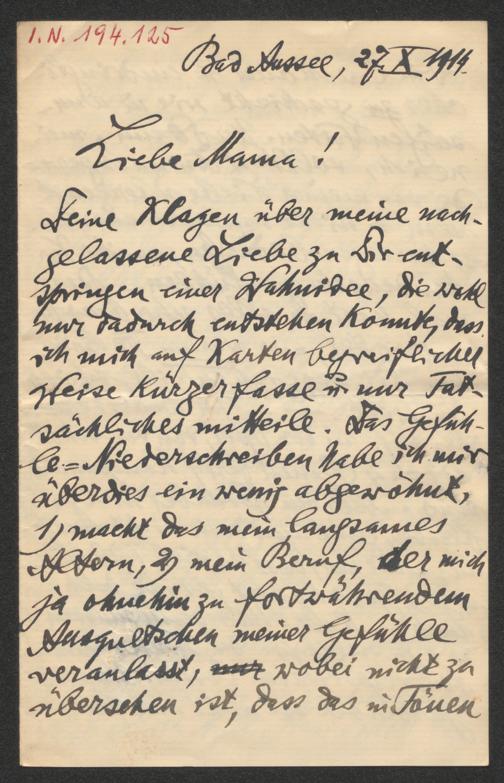 I.N. 194.125
Bad Aussee, 27 X 1914.
Liebe Mama!
Deine Klagen über meine nach-
gelassene Liebe zu Dir ent-
springen einer Wahnidee, die wohl
nur dadurch entstehen konnte, dass
ich mich auf Karten begreiflicher
Weise kürzer fasse u. nur Tat-
sächliches mitteile. Das Gefüh-
le=Niederschreiben habe ich mir
überdies ein wenig abgewöhnt,
1) macht das mein langsames
Altern, 2) mein Beruf, der mich
ja ohnehin zu fortwährendem
Ausquetschen meiner Gefühle
veranlasst, nur wobei nicht zu
übersehen ist, dass das in Tönen